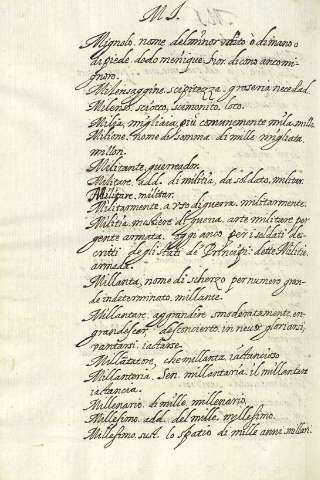 M I.
Mignolo. nome del minor dito ò di mano o
di piede. dedo menique. fior di
Milensaggine. scipitezza. groseria necedad.
Melenso. sciocco, scimonito. loco.
Milia, migliaia, più comunemente mila. mille.
Milione. nome di somma di mille migliaia.
millon.
Militante, guerreador.
Militare. add. di militia, da soldato, militar.
Militare. militar.
Militarmente. a uso di guerra. militarmente.
Militia. mestiere di guerra. arte militare per
gente armata. per i soldati de=
scritti degli stati de Principi. dette Militie.
armada.
Millanta, nome di scherzo per numero gran=
de indeterminato, millante.
Millantare. aggrandire smoderatamente. en=
grandescer. desconcierto. in neut. gloriarsi,
vantarsi. iactarse.
Millatatore, che millanta, iactancioso
Millanteria. Sen. millantaria. il millantare
iactancia.
Millenario. di mille, millenario.
Millesimo. add. del mille, millesimo.
Millesimo. sust. lo spatio di mille anni. millar.